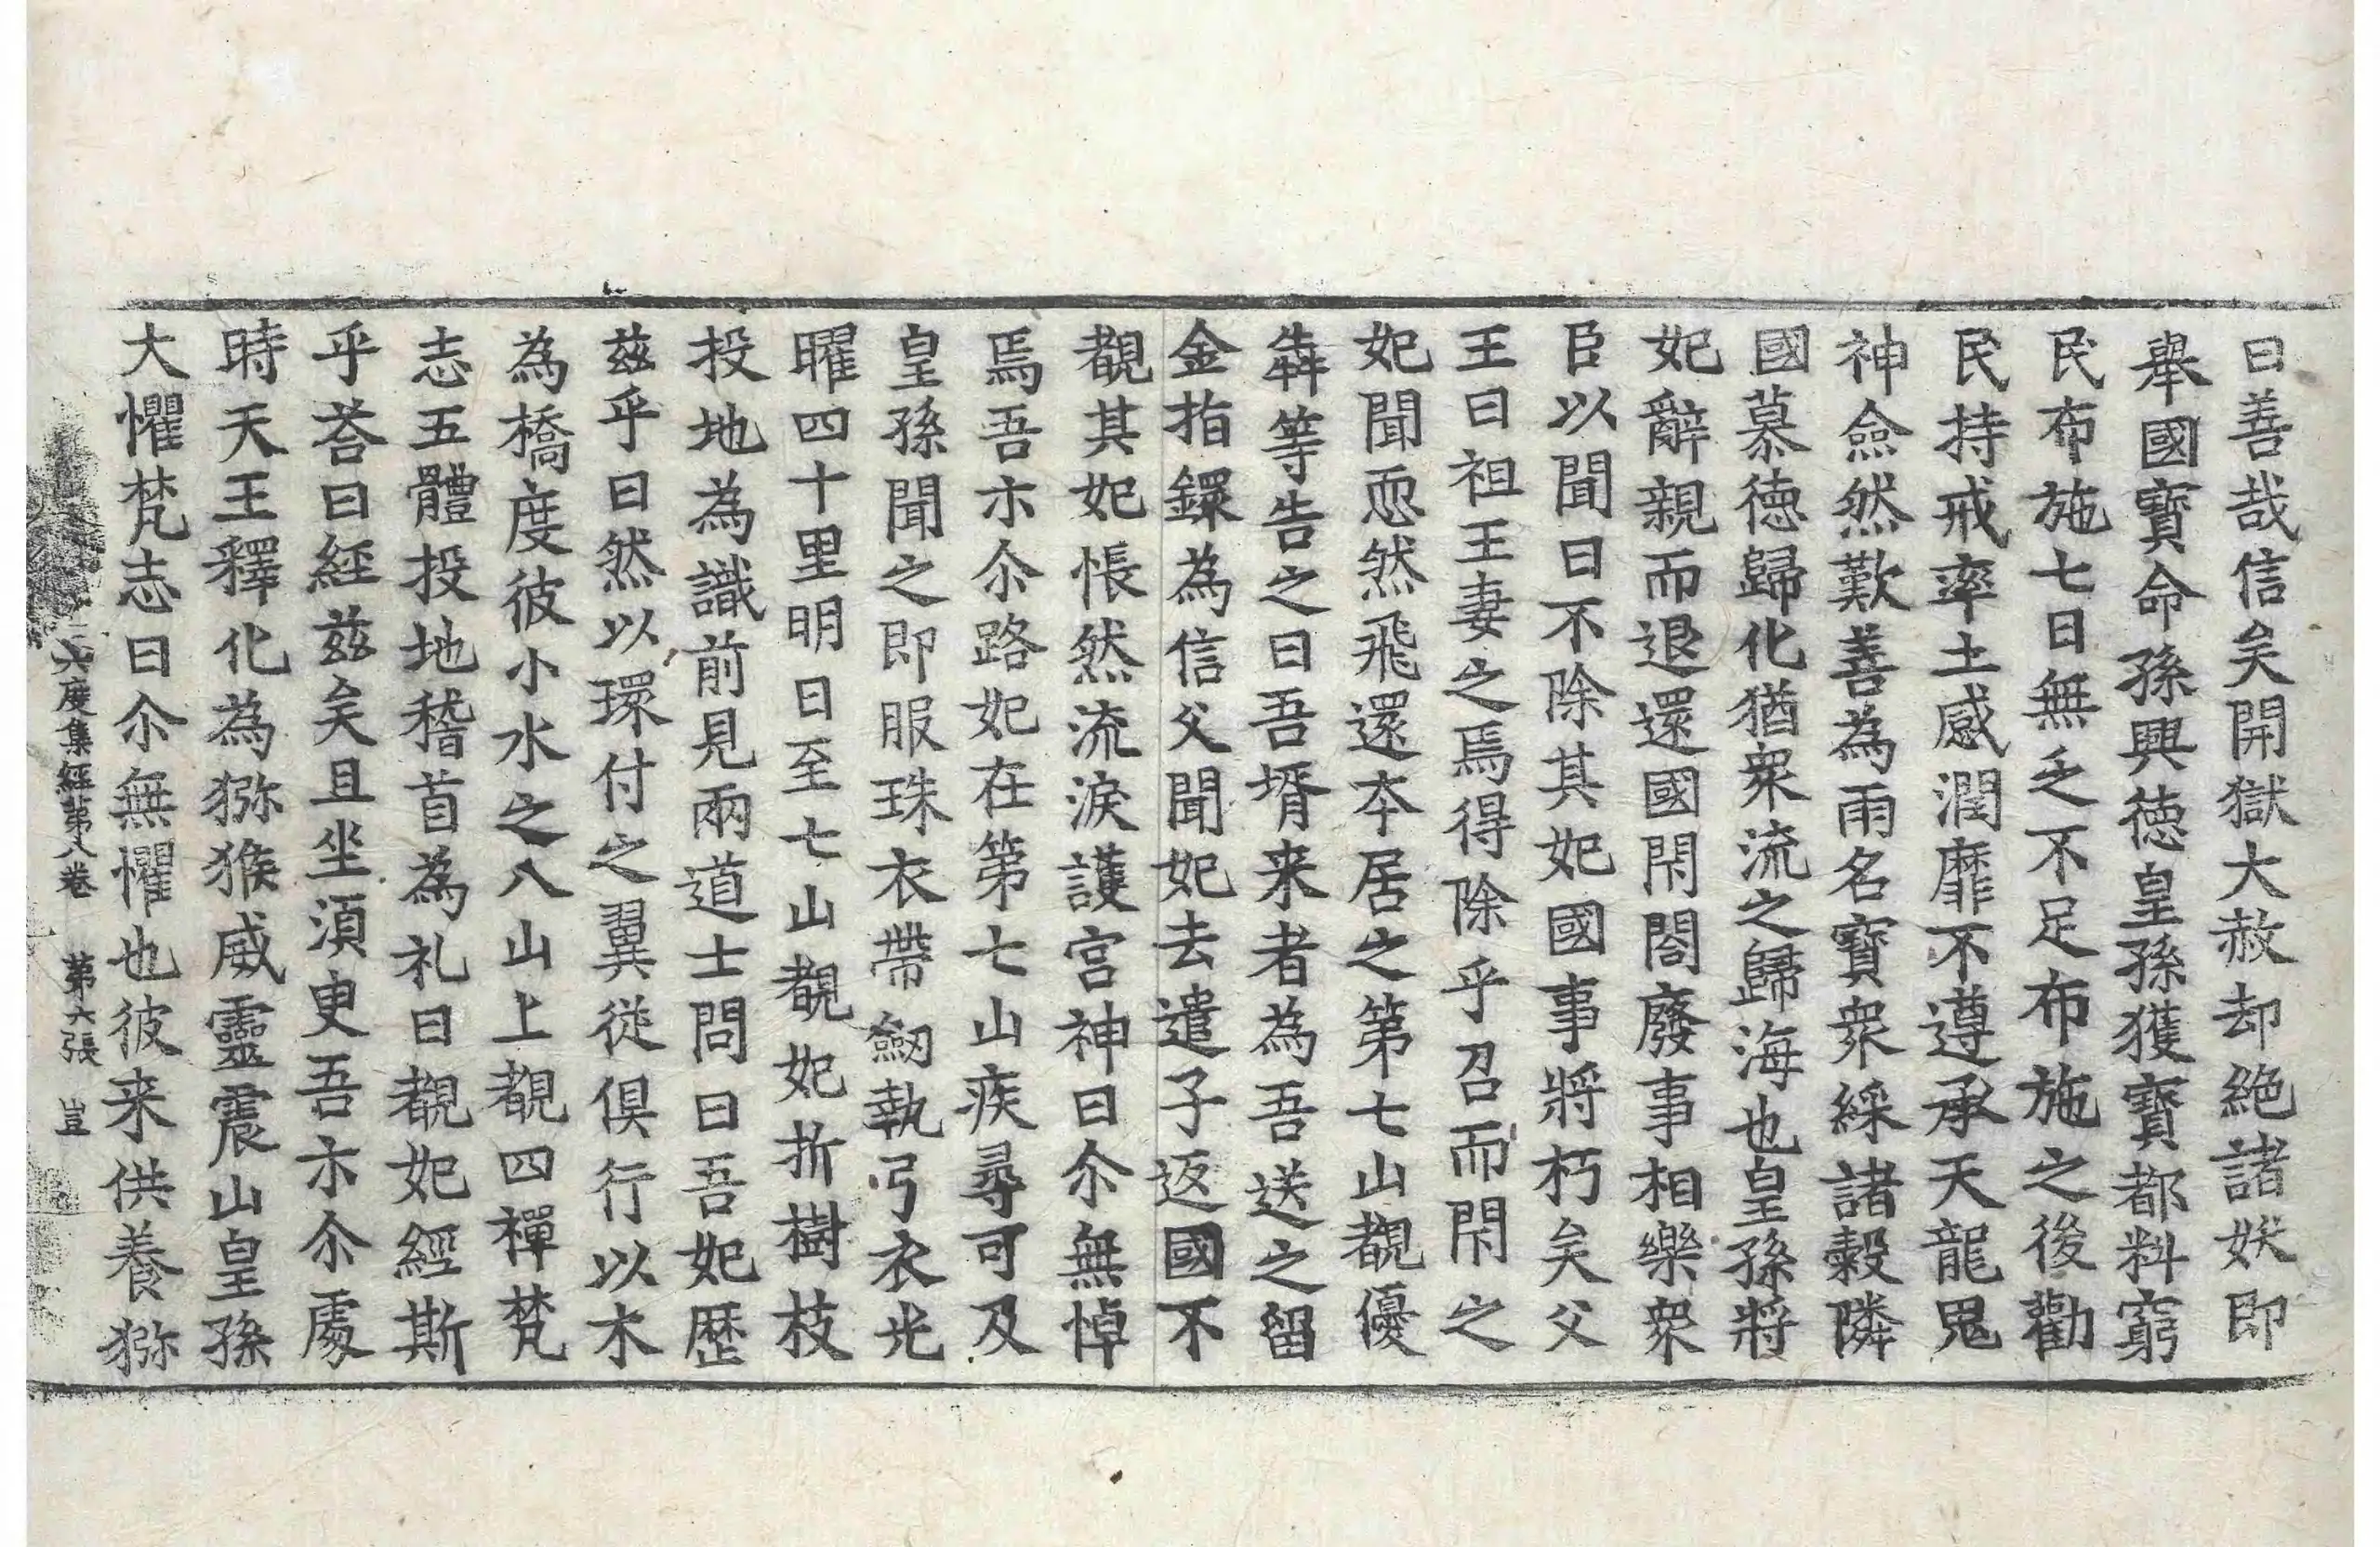 曰善哉信矣開獄大赦却絶諸妖即
舉國寶命孫興德皇孫獲寶都料窮
民布施七日無乏不足布施之後勸
民持戒率土感潤靡不遵承天龍鬼
神僉然歎善為雨名寶衆綵諸穀隣
國慕德歸化猶衆流之歸海也皇孫將
妃辭親而退還國閇閤廢事相樂衆
臣以聞曰不除其妃國事將朽矣父
王曰祖王妻之焉得除乎召而閇之
妃聞恧然飛還本居之第七山覩優
犇等告之曰吾壻来者為吾送之留
金指鐶為信父聞妃去遣子返國不
覩其妃悵然流淚護宮神曰尒無悼
焉吾尒尒路妃在第七山疾尋可及
皇孫聞之即服珠衣帶劒執弓衣光
曜四十里明日至七山覩妃折樹枝
投地為識前見兩道士問曰吾妃歷
茲乎曰然以環付之翼從俱行以木
為橋度彼小水之八山上覩四禪梵
志五體投地稽首為礼曰覩妃經斯
乎荅曰經茲矣且坐須臾吾示尒處
時天王釋化為獼猴威靈震山皇孫
大懼梵志曰尒無懼也彼来供養獼
六度集經第八卷 第六張 豈